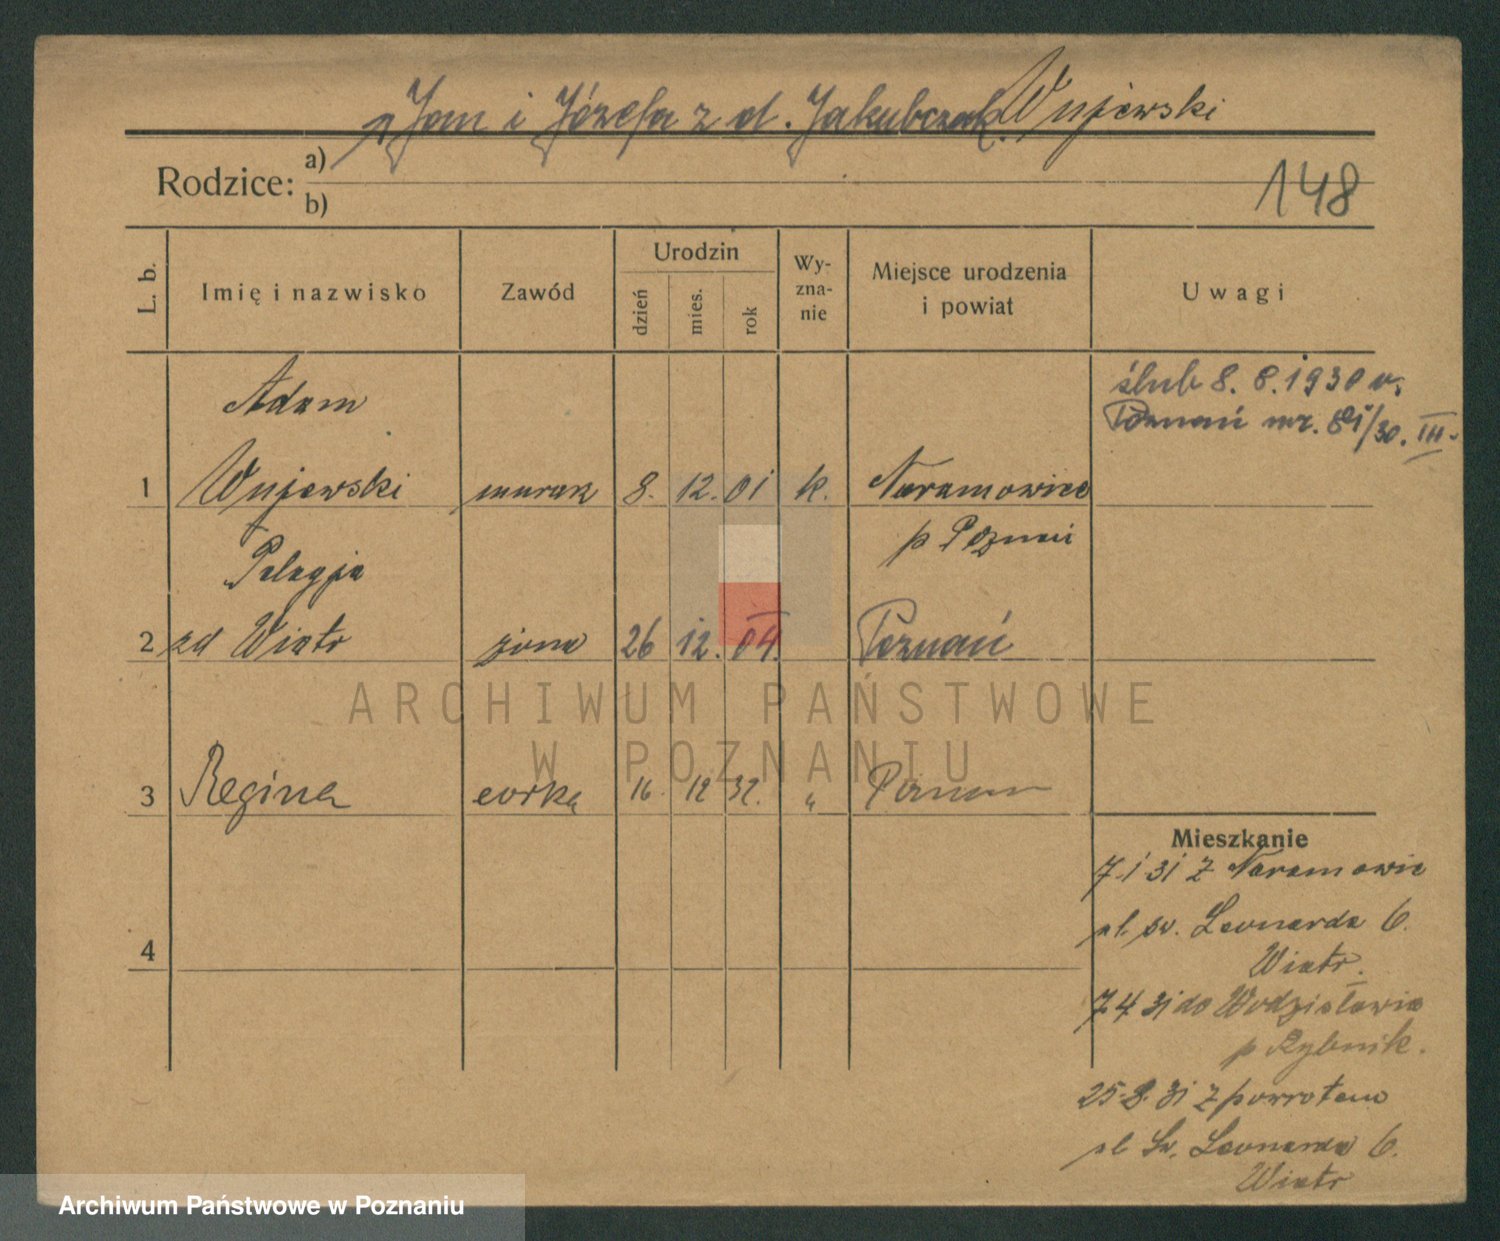 Jan i Józefa z d. Jakubczak. Wujewski
Rodzice: a)
b)
148
L. b.
Imię i nazwisko
Zawód
Urodzin
dzień
mies.
rok
Wy-
zna-
nie
Miejsce urodzenia
i powiat
Uwagi
ślub 8. 8. 1930 w.
Poznań nr. 81/30. III.
Adam
1 Wujewski murarz 8. 12. 01 k. Naramowice
p Poznań
Pelagja
2 zd Wiatr żona 26 12. 04. Poznań
3 Regina córka 16. 12 32. " Poznań
4
Mieszkanie
7.1 31 z Naramowic
ul. św. Leonarda 6.
Wiatr.
7.4 31 do Wodzisławia
p Rybnik.
25.8. 31 z powrotem
ul Św. Leonarda 6.
Wiatr
ARCHIWUM PAŃSTWOWE
W POZNANIU
Archiwum Państwowe w Poznaniu